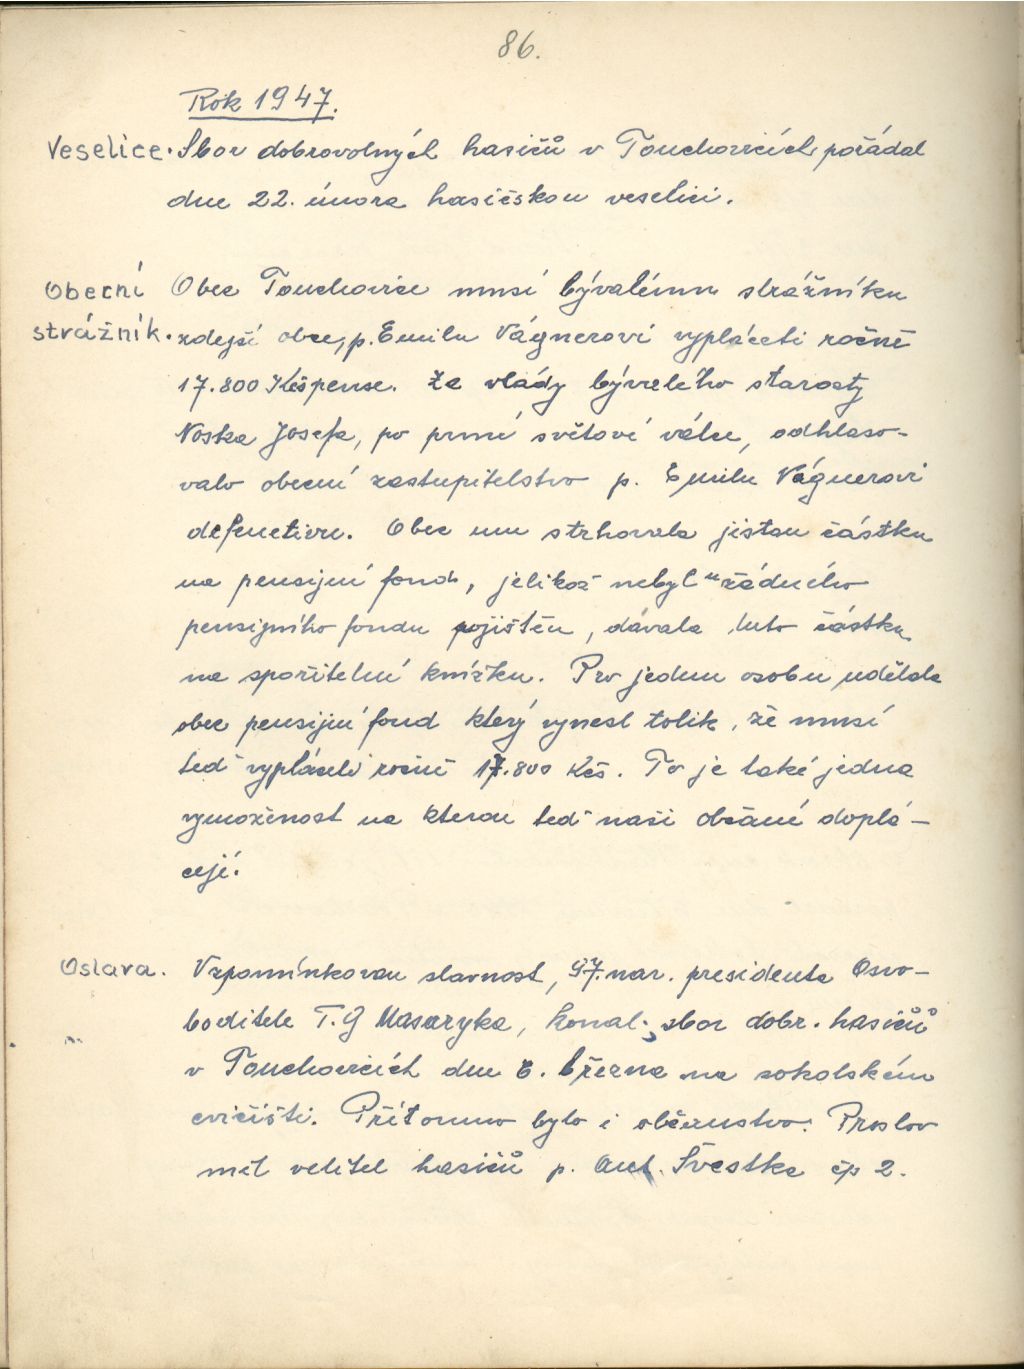 86.
Rok 1947.
Veselice. Sbor dobrovolných hasičů v Touchovicích pořádal
dne 22. února hasičskou veselici.
Obecní Obec Touchovice musí bývalému strážníku
strážník. zdejší obce, p. Emilu Vágnerovi vypláceti ročně
17.800 Kčs pense. Za vlády bývalého starosty
Noska Josefa, po první světové válce, odhlaso-
valo obecní zastupitelstvo p. Emilu Vágnerovi
definetivu. Obec mu strhovala jistou částku
na pensijní fond, jelikož nebyl u žádného
pensijního fondu pojištěn, dávala tuto částku
na spořitelní knížku. Pro jednu osobu udělala
obec pensijní fond který vynesl tolik, že musí
teď vypláceti ročně 17.800 Kčs. To je také jedna
vymoženost na kterou teď naši občané doplá-
cejí.
Oslava. Vzpomínkovou slavnost, 97. nar. presidenta Osvo-
boditele T. G Masaryka, konal sbor dobr. hasičů
v Touchovicích dne 6. března na sokolském
cvičišti. Přítomno bylo i občanstvo. Proslov
měl velitel hasičů p. Ant. Švestka čp 2.